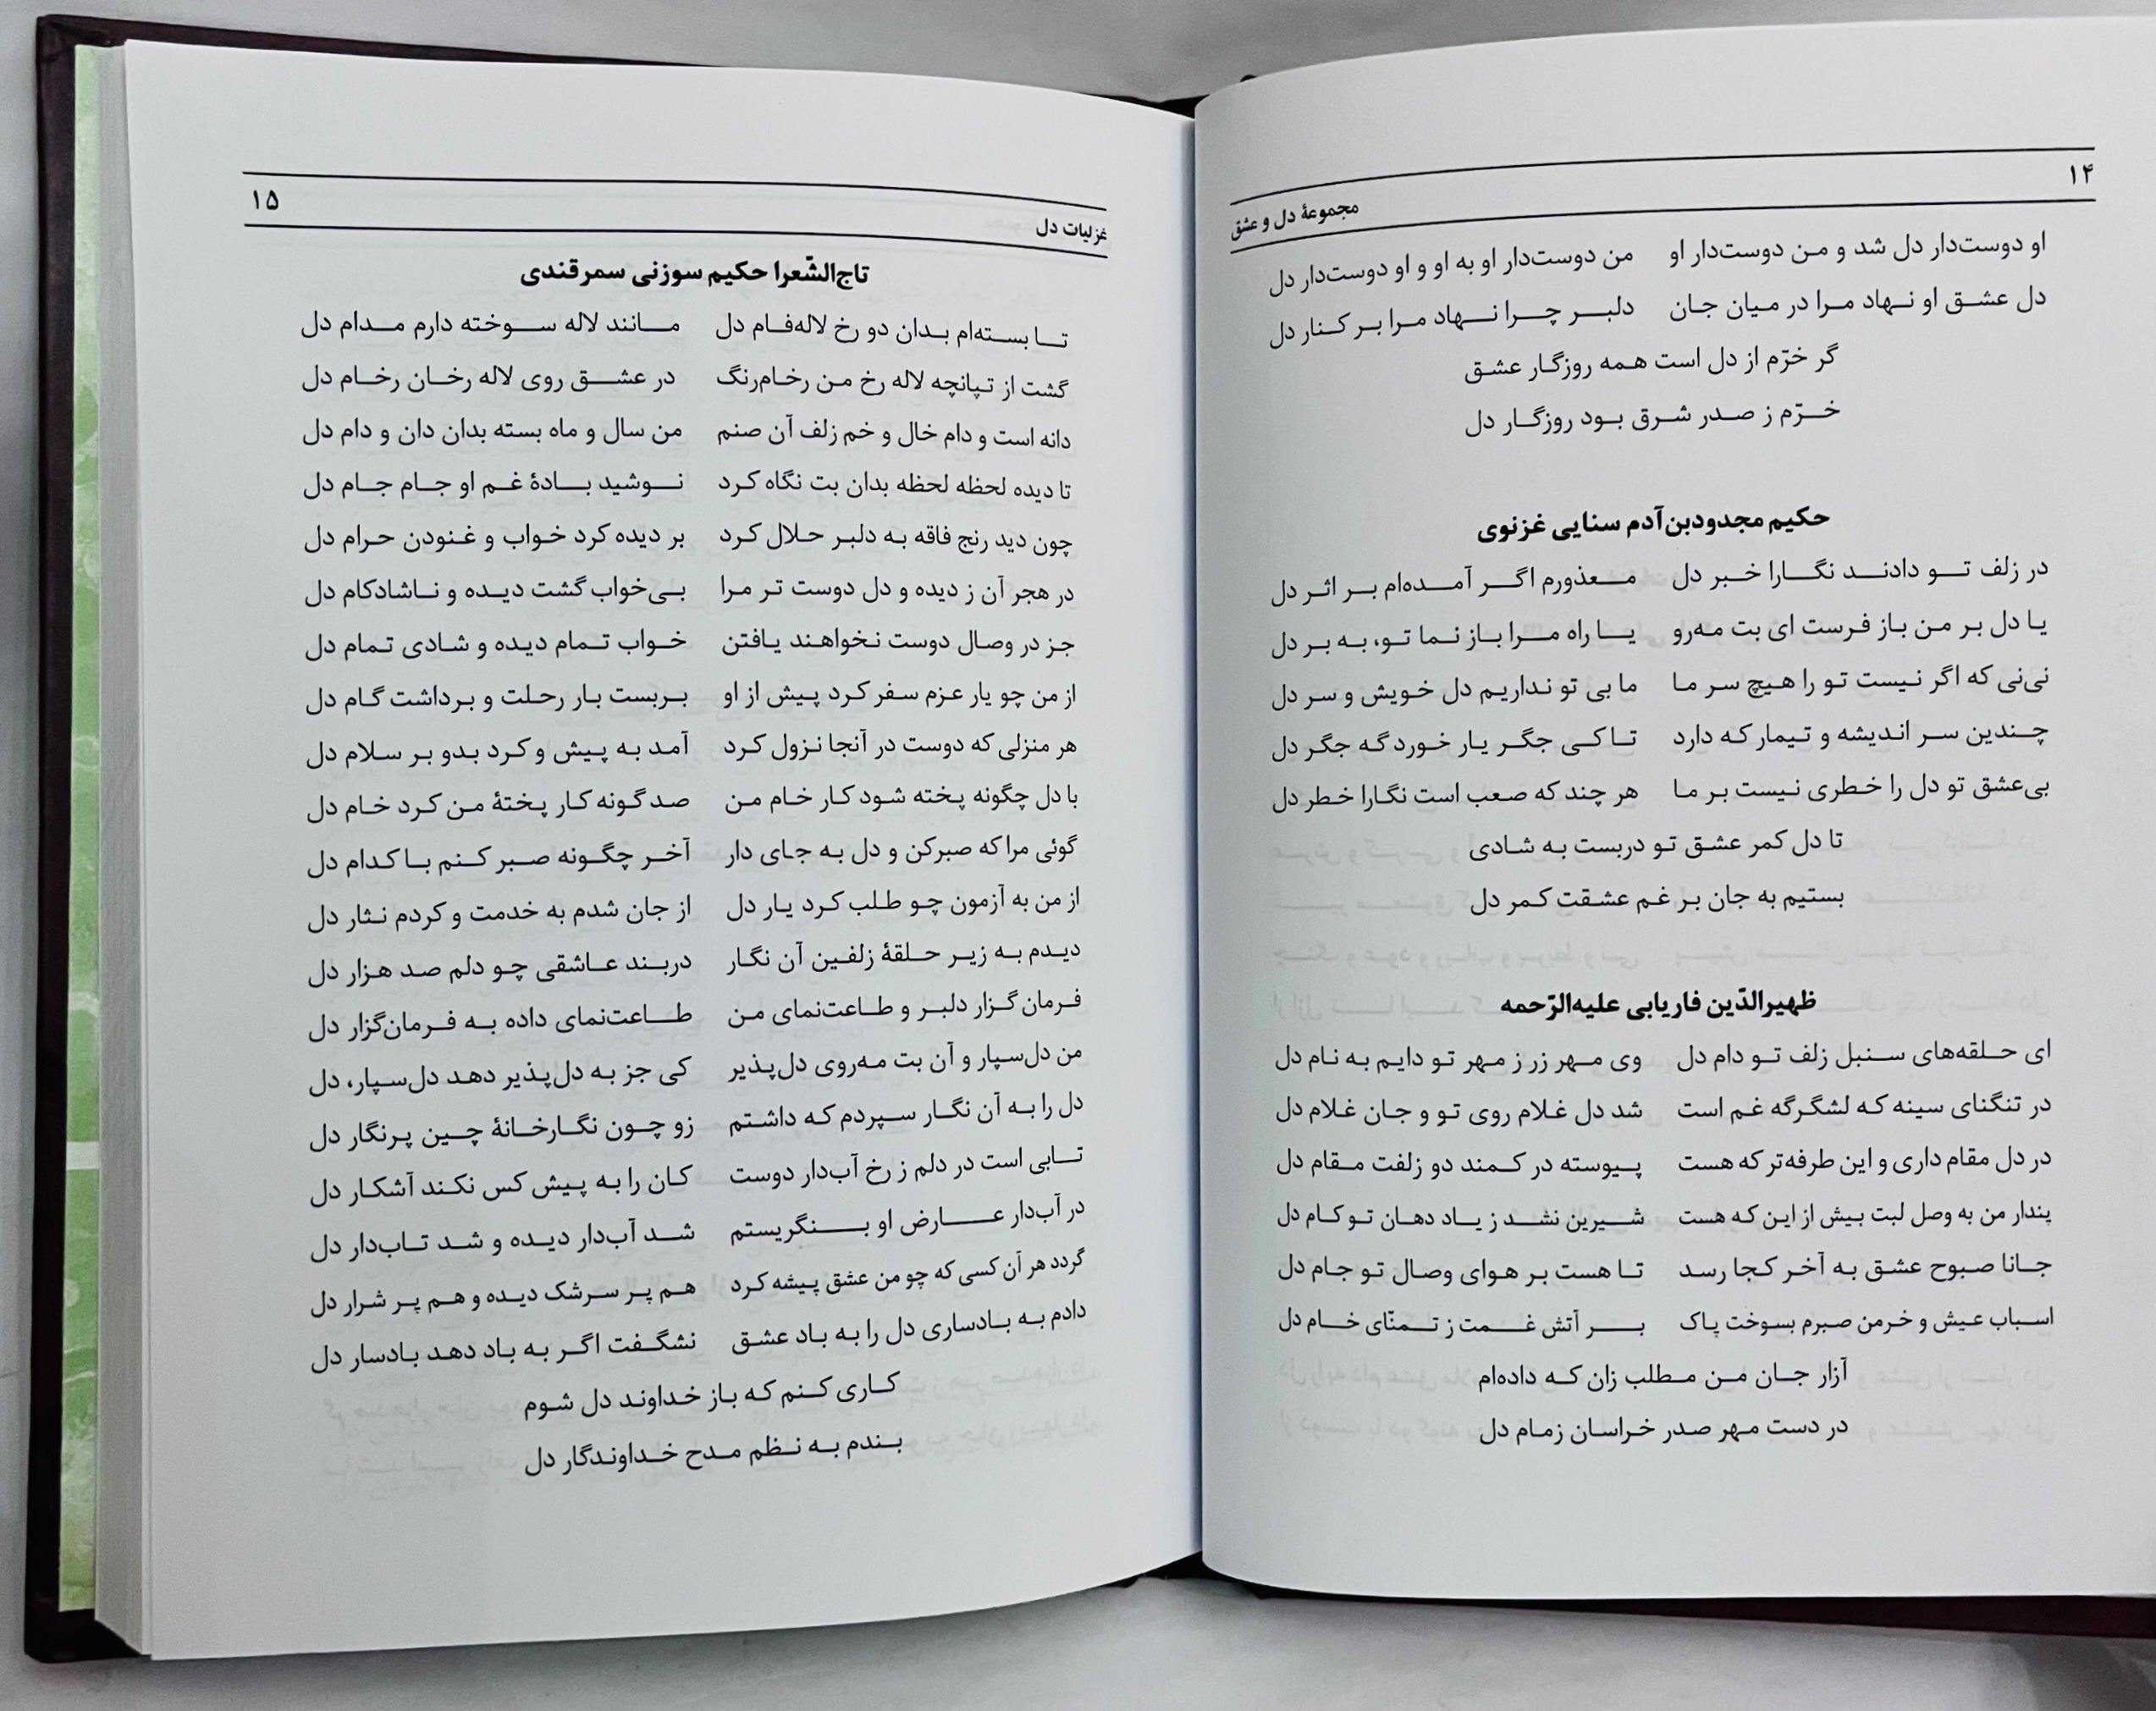 ۱۴
مجموعهٔ دل و عشق
او دوست‌دار دل شد و من دوست‌دار او من دوست‌دار او به او و او دوست‌دار دل
دل عشق او نهاد مرا در میان جان دلبر چرا نهاد مرا بر کنار دل
گر خرّم از دل است همه روزگار عشق
خرّم ز صدر شرق بود روزگار دل
حکیم مجدودبن‌آدم سنایی غزنوی
در زلف تو دادند نگارا خبر دل معذورم اگر آمده‌ام بر اثر دل
یا دل بر من باز فرست ای بت مه‌رو یا راه مرا باز نما تو، به بر دل
نی‌نی که اگر نیست تو را هیچ سر ما ما بی تو نداریم دل خویش و سر دل
چندین سر اندیشه و تیمار که دارد تا کی جگر یار خورد گه جگر دل
بی‌عشق تو دل را خطری نیست بر ما هر چند که صعب است نگارا خطر دل
تا دل کمر عشق تو دربست به شادی
بستیم به جان بر غم عشقت کمر دل
ظهیرالدّین فاریابی علیه‌الرّحمه
ای حلقه‌های سنبل زلف تو دام دل وی مهر زر ز مهر تو دایم به نام دل
در تنگنای سینه که لشگرگه غم است شد دل غلام روی تو و جان غلام دل
در دل مقام داری و این طرفه‌تر که هست پیوسته در کمند دو زلفت مقام دل
پندار من به وصل لبت بیش از این که هست شیرین نشد ز یاد دهان تو کام دل
جانا صبوح عشق به آخر کجا رسد تا هست بر هوای وصال تو جام دل
اسباب عیش و خرمن صبرم بسوخت پاک بر آتش غمت ز تمنّای خام دل
آزار جان من مطلب زان که داده‌ام
در دست مهر صدر خراسان زمام دل
۱۵
غزلیات دل
تاج‌الشّعرا حکیم سوزنی سمرقندی
تا بسته‌ام بدان دو رخ لاله‌فام دل مانند لاله سوخته دارم مدام دل
گشت از تپانچه لاله رخ من رخام‌رنگ در عشق روی لاله رخان رخام دل
دانه است و دام خال و خم زلف آن صنم من سال و ماه بسته بدان دان و دام دل
تا دیده لحظه لحظه بدان بت نگاه کرد نوشید بادهٔ غم او جام جام دل
چون دید رنج فاقه به دلبر حلال کرد بر دیده کرد خواب و غنودن حرام دل
در هجر آن ز دیده و دل دوست تر مرا بی‌خواب گشت دیده و ناشادکام دل
جز در وصال دوست نخواهند یافتن خواب تمام دیده و شادی تمام دل
از من چو یار عزم سفر کرد پیش از او بربست بار رحلت و برداشت گام دل
هر منزلی که دوست در آنجا نزول کرد آمد به پیش و کرد بدو بر سلام دل
با دل چگونه پخته شود کار خام من صد گونه کار پختهٔ من کرد خام دل
گوئی مرا که صبرکن و دل به جای دار آخر چگونه صبر کنم با کدام دل
از من به آزمون چو طلب کرد یار دل از جان شدم به خدمت و کردم نثار دل
دیدم به زیر حلقهٔ زلفین آن نگار دربند عاشقی چو دلم صد هزار دل
فرمان گزار دلبر و طاعت‌نمای من طاعت‌نمای داده به فرمان‌گزار دل
من دل‌سپار و آن بت مه‌روی دل‌پذیر کی جز به دل‌پذیر دهد دل‌سپار، دل
دل را به آن نگار سپردم که داشتم زو چون نگارخانهٔ چین پرنگار دل
تابی است در دلم ز رخ آب‌دار دوست کان را به پیش کس نکند آشکار دل
در آب‌دار عارض او بنگریستم شد آب‌دار دیده و شد تاب‌دار دل
گردد هر آن کسی که چو من عشق پیشه کرد هم پر سرشک دیده و هم پر شرار دل
دادم به بادساری دل را به باد عشق نشگفت اگر به باد دهد بادسار دل
کاری کنم که باز خداوند دل شوم
بندم به نظم مدح خداوندگار دل